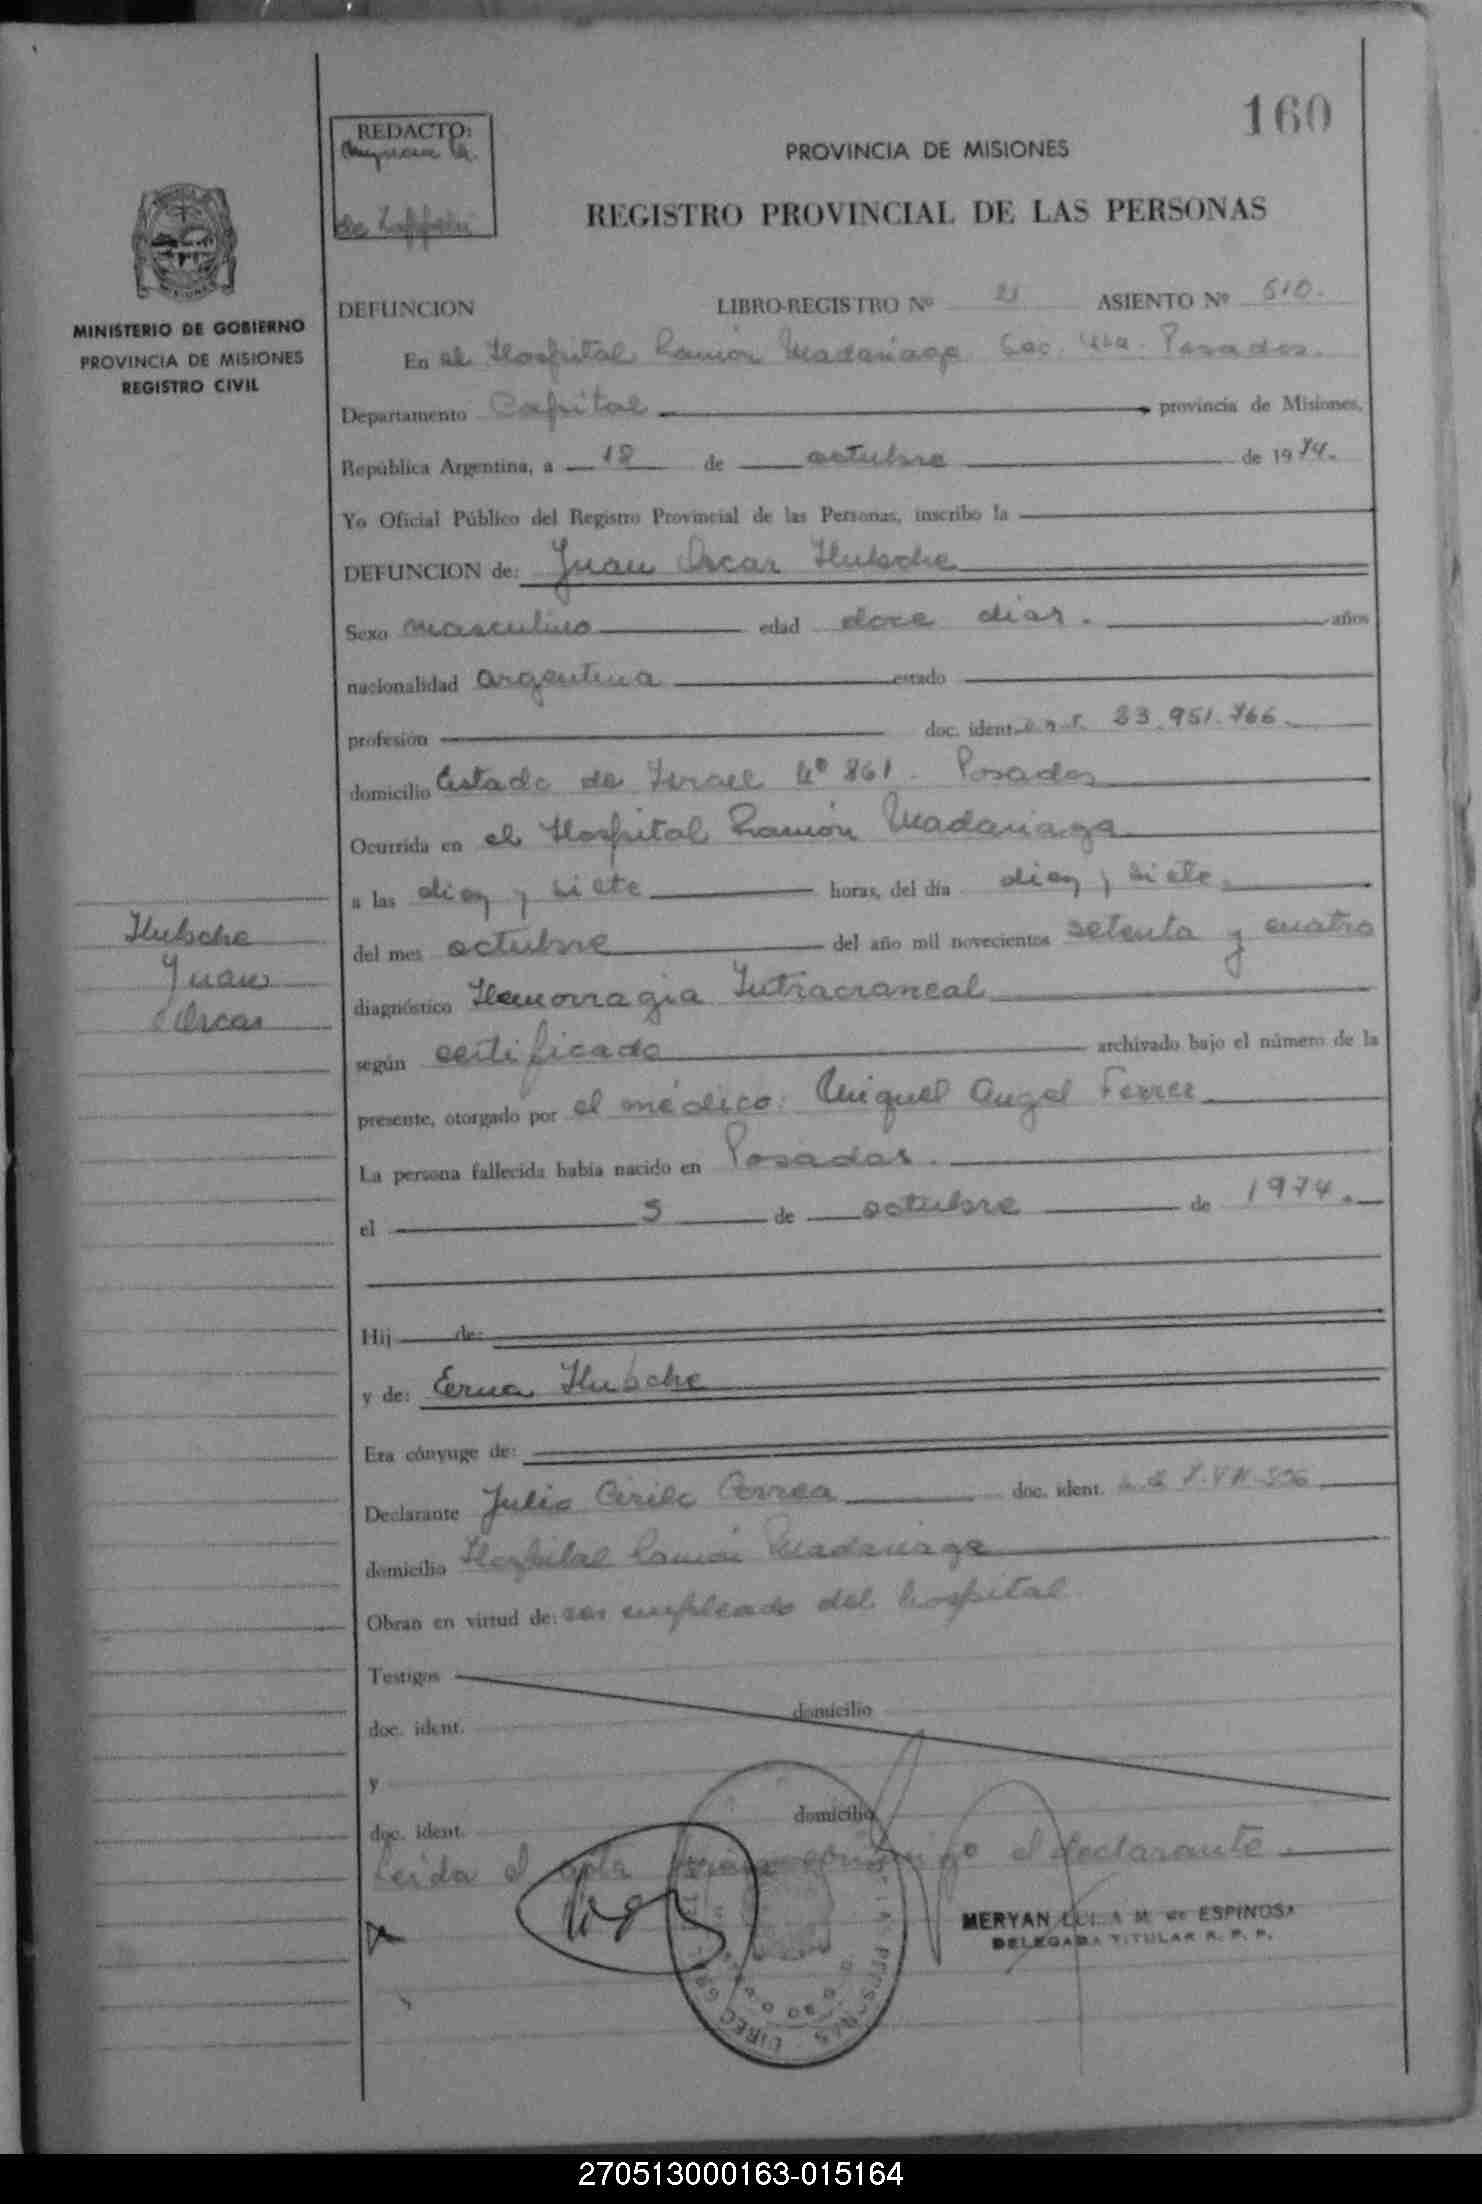 160
REDACTO:
PROVINCIA DE MISIONES
REGISTRO PROVINCIAL DE LAS PERSONAS
MINISTERIO DE GOBIERNO
PROVINCIA DE MISIONES
REGISTRO CIVIL
DEFUNCION LIBRO-REGISTRO Nº 21 ASIENTO Nº 510.
En el Hospital Ramón Madariaga Sec. 4ta. Posadas.
Departamento Capital provincia de Misiones,
República Argentina, a 18 de octubre de 1974.
Yo Oficial Público del Registro Provincial de las Personas, inscribo la
DEFUNCION de: Juan Oscar Hubsche
Sexo masculino edad doce dias. años
nacionalidad argentina estado
profesión doc. ident. 23.951.766
domicilio Estado de Israel Nº 861. Posadas
Ocurrida en el Hospital Ramón Madariaga
a las diez y siete horas, del día diez y siete
del mes octubre del año mil novecientos setenta y cuatro
diagnóstico Hemorragia Intracraneal
según certificado archivado bajo el número de la
presente, otorgado por el médico: Miguel Angel Ferrer
La persona fallecida había nacido en Posadas.
el 5 de octubre de 1974.
Hij de:
y de: Erna Hubsche
Era cónyuge de:
Declarante Julio Cirilo Correa doc. ident.
domicilio Hospital Ramón Madariaga
Obran en virtud de: ser empleado del hospital
Testigos
domicilio
doc. ident.
y
domicilio
doc. ident.
Leida el acta conmigo el declarante.
MERYAN M. de ESPINOSA
DELEGADA TITULAR R. P. P.
Hubsche
Juan
Oscar
270513000163-015164